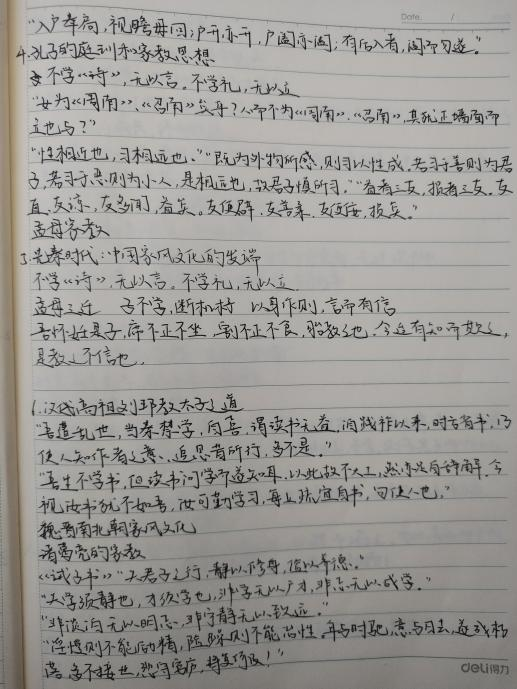 Date.
"入户奉扃，视瞻毋回；户开亦开，户阖亦阖；有后入者，阖而勿遂。"
4.孔子的庭训和家教思想
不学《诗》，无以言。不学礼，无以立
"女为《周南》、《召南》矣乎？人而不为《周南》、《召南》，其犹正墙面而
立也与？"
"性相近也，习相远也。""既为外物所感，则习以性成。若习于善则为君
子，若习于恶则为小人，是相远也，故君子慎所习。""益者三友，损者三友。友
直、友谅、友多闻，益矣。友便辟、友善柔、友便佞，损矣。"
孟母家教
5.先秦时代：中国家风文化的发端
不学《诗》，无以言。不学礼，无以立
孟母三迁 子不学，断机杼 以身作则，言而有信
吾怀妊是子，席不正不坐，割不正不食，胎教之也，今适有知而欺之，
是教之不信也。
1.汉代高祖刘邦教太子之道
"吾遭乱世，当秦禁学，自喜，谓读书无益，洎践祚以来，时方省书，乃
使人知作者之意、追思昔所行，多不是。"
"吾生不学书，但读书问学而遂知耳，以此故不大工，然亦足自辞解。今
视汝书犹不如吾，汝可勤学习，每上疏宜自书，勿使人也。"
魏晋南北朝家风文化
诸葛亮的家教
《诫子书》"夫君子之行，静以修身，俭以养德。"
"夫学须静也，才须学也，非学无以广才，非志无以成学。"
"非淡泊无以明志，非宁静无以致远。"
"淫慢则不能励精，险躁则不能治性。年与时驰，意与日去，遂成枯
落，多不接世，悲守穷庐，将复何及！"
deli得力